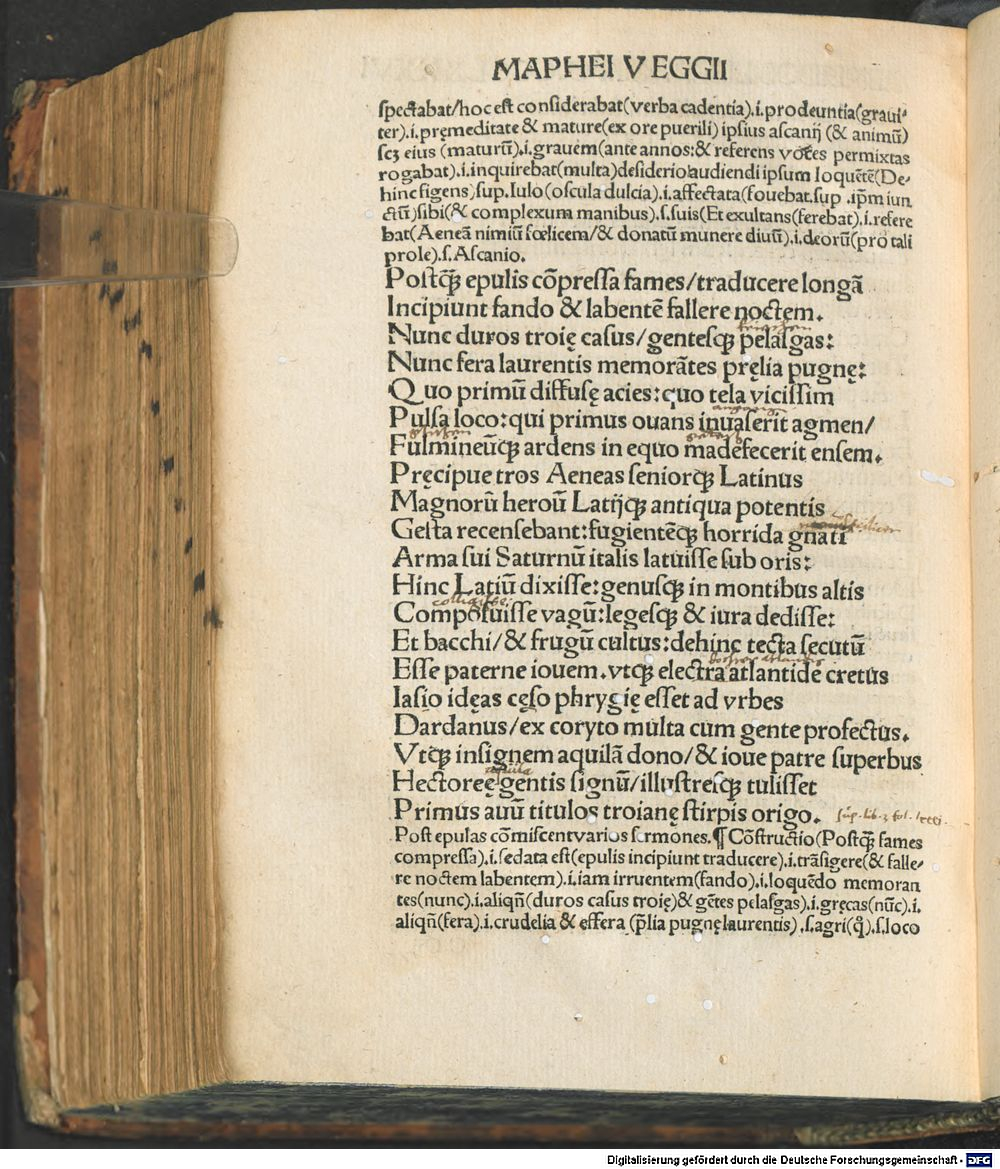 MAPHEI VEGGII
spectabat/hoc est considerabat(verba cadentia).i.prodeuntia(graui-
ter).i.pręmeditate & mature(ex ore puerili) ipsius ascanij (& animū)
scꝫ eius (maturū).i.grauem(ante annos:& referens voces permixtas
rogabat).i.inquirebat(multa)desiderio audiendi ipsum loquētē(De-
hinc figens)sup.Iulo(oscula dulcia).i.affectata(fouebat.sup .ip̄m iun
ctū)sibi(& complexum manibus).s.suis(Et exultans(ferebat).i.refere
bat(Aeneā nimiū fœlicem/& donatū munere diuū).i.deorū(pro tali
prole).s.Ascanio.
Postq̄ꝫ epulis cōpressa fames/traducere longā
Incipiunt fando & labentē fallere noctem.
Nunc duros troię casus/gentesqꝫ pelasgas:
Nunc fera laurentis memorātes pręlia pugnę:
Quo primū diffusę acies:quo tela vicissim
Pulsa loco:qui primus ouans inuaserit agmen/
Fulmineūqꝫ ardens in equo madefecerit ensem.
Pręcipue tros Aeneas seniorqꝫ Latinus
Magnorū heroū Latijqꝫ antiqua potentis
Gesta recensebant:fugientēqꝫ horrida gnati
Arma sui Saturnū italis latuisse sub oris:
Hinc Latiū dixisse:genusqꝫ in montibus altis
Composuisse vagū:legesqꝫ & iura dedisse:
Et bacchi/& frugū cultus:dehinc tecta secutū
Esse paterne iouem.vtqꝫ electra atlantide cretus
Iasio idęas cęso phrygię esset ad vrbes
Dardanus/ex coryto multa cum gente profectus.
Vtqꝫ insignem aquilā dono/& ioue patre superbus
Hectoreę gentis signū/illustresqꝫ tulisset
Primus auū titulos troianę stirpis origo.
Post epulas cōmiscent varios sermones.¶Cōstructio(Postq̄ꝫ fames
compressa).i.sedata est(epulis incipiunt traducere).i.trāsigere(& falle-
re noctem labentem).i.iam irruentem(fando).i.loquēdo memoran
tes(nunc).i.aliqn̄(duros casus troię)& gētes pelasgas).i.gręcas(nūc).i.
aliqn̄(fera).i.crudelia & effera (p̄lia pugnę laurentis).s.agri(q̊).s.loco
Digitalisierung gefördert durch die Deutsche Forschungsgemeinschaft - DFG